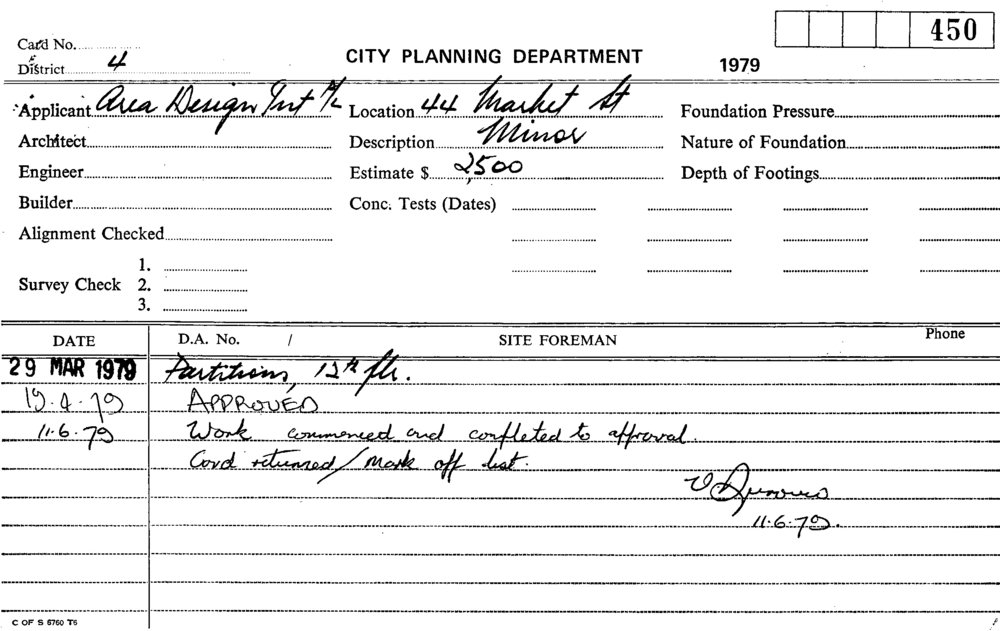 450
Card No.
CITY PLANNING DEPARTMENT
1979
District 4
Applicant Area Design Int P/L Location 44 Market St Foundation Pressure
Architect Description Minor Nature of Foundation
Engineer Estimate $ 2,500 Depth of Footings
Builder Conc. Tests (Dates)
Alignment Checked
1.
Survey Check 2.
3.
DATE D.A. No. / SITE FOREMAN Phone
29 MAR 1979 Partitions, 12th flr.
19.4.79 APPROVED
11.6.79 Work commenced and completed to approval.
Card returned/mark off list.
11.6.79.
C OF S 6760 T6